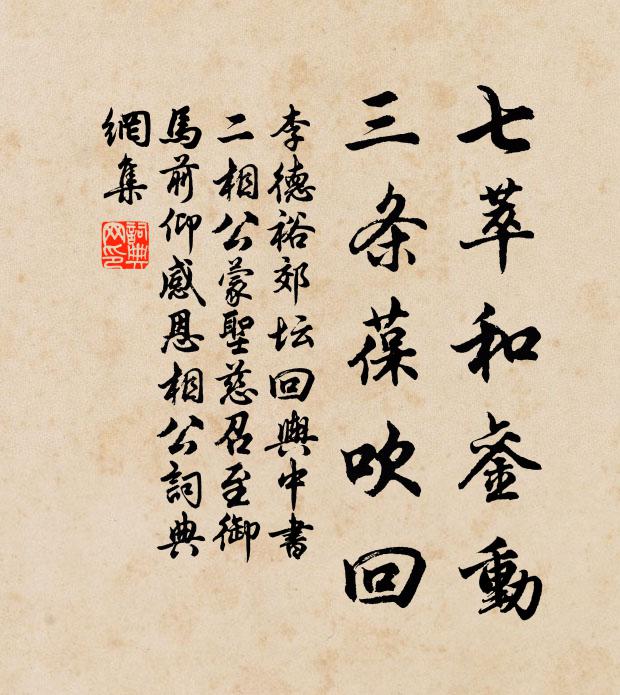 七萃和銮動
三条葆吹回
李德裕郊坛回輿中書
二相公蒙聖慈召至御
馬前仰感恩相公詞典
網集
詞典
网印